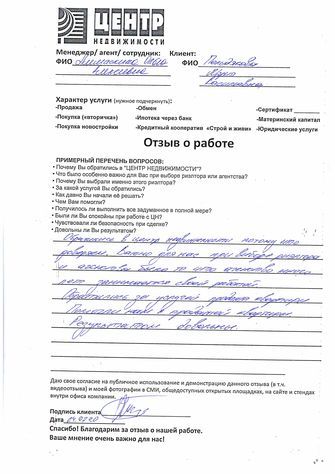 ЦЕНТР
НЕДВИЖИМОСТИ
Менеджер/ агент/ сотрудник: Клиент:
ФИО ФИО
Характер услуги (нужное подчеркнуть):
-Продажа -Обмен -Сертификат
-Покупка «вторички» -Ипотека через банк -Материнский капитал
-Покупка новостройки -Кредитный кооператив «Строй и живи» -Юридические услуги
Отзыв о работе
ПРИМЕРНЫЙ ПЕРЕЧЕНЬ ВОПРОСОВ:
• Почему Вы обратились в "ЦЕНТР НЕДВИЖИМОСТИ"?
• Что было особенно важно для Вас при выборе риэлтора или агентства?
• Почему Вы выбрали именно этого риэлтора?
• За какой услугой Вы обратились?
• Как давно Вы начали её решать?
• Чем Вам помогли?
• Получилось ли выполнить все задуманное в полной мере?
• Были ли Вы спокойны при работе с ЦН?
• Чувствовали ли безопасность при сделке?
• Довольны ли Вы результатом?
Обратились в центр недвижимости потому что
доверяем. Важно для нас при выборе риэлтора
и агентства было то что агентство много
лет занимается своей работой.
Обратились за услугой продажа квартиры
Помогли нам с продажей квартиры.
Результатом довольны.
Даю свое согласие на публичное использование и демонстрацию данного отзыва (в т.ч.
видеоотзыва) и моей фотографии в СМИ, общедоступных открытых площадках, на сайте и стендах
внутри офиса компании.
Подпись клиента
Дата
Спасибо! Благодарим за отзыв о нашей работе.
Ваше мнение очень важно для нас!